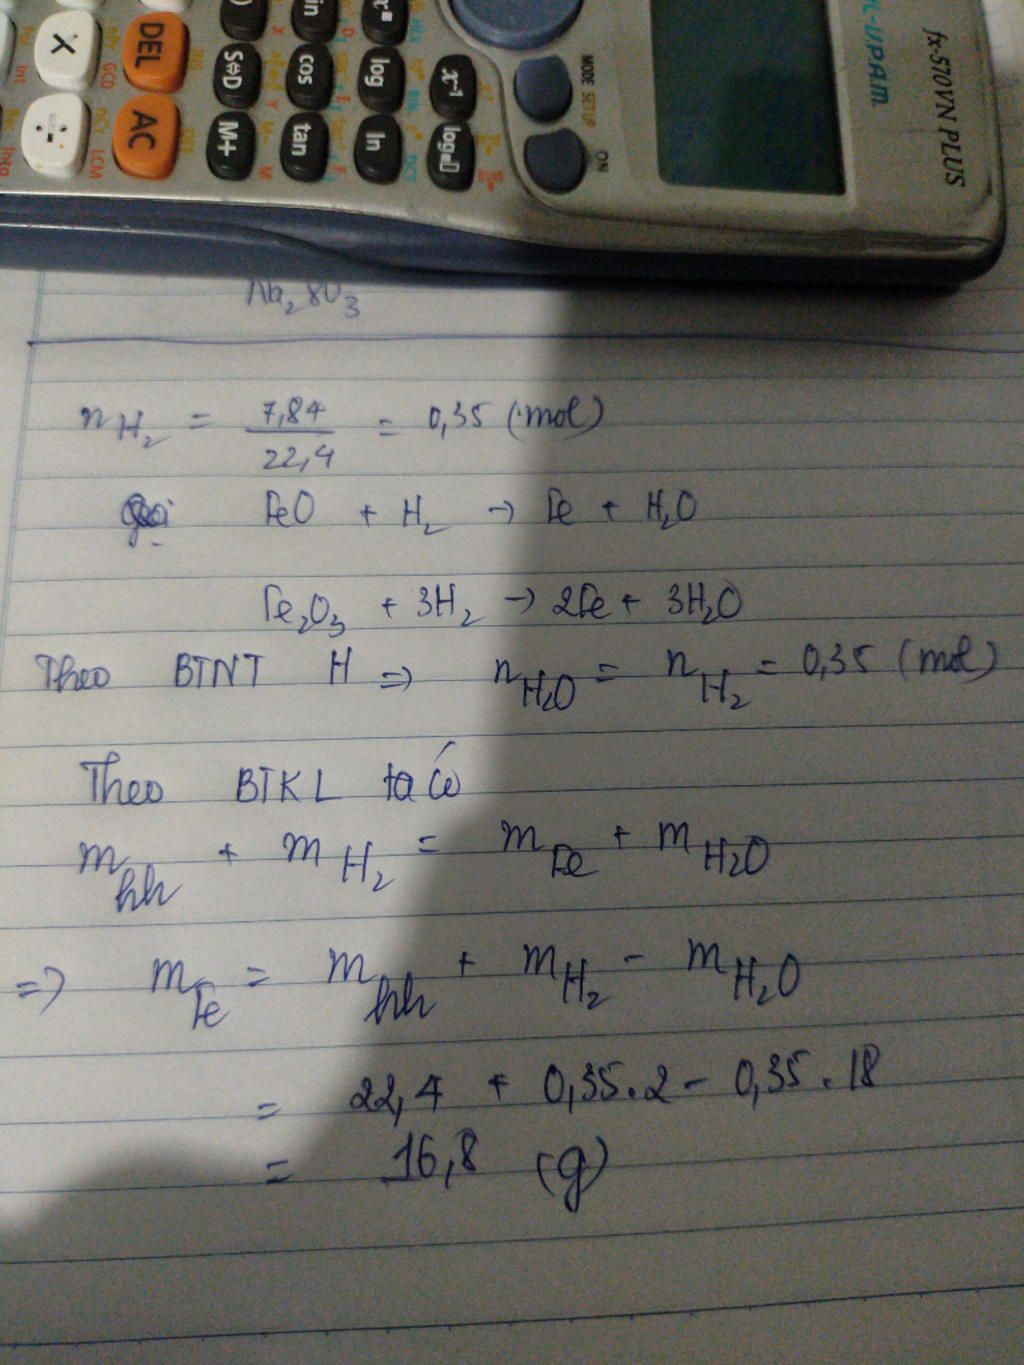 fx-570VN PLUS
MODE SETUP
ON
x⁻¹
log
ln
cos
tan
S⇔D
M+
DEL
AC
×
÷
GCD
LCM
nH₂ = 7,84/22,4 = 0,35 (mol)
FeO + H₂ → Fe + H₂O
Fe₂O₃ + 3H₂ → 2Fe + 3H₂O
Theo BTNT H ⇒ nH₂O = nH₂ = 0,35 (mol)
Theo BTKL ta có
mhh + mH₂ = mFe + mH₂O
⇒ mFe = mhh + mH₂ - mH₂O
= 22,4 + 0,35.2 - 0,35.18
= 16,8 (g)